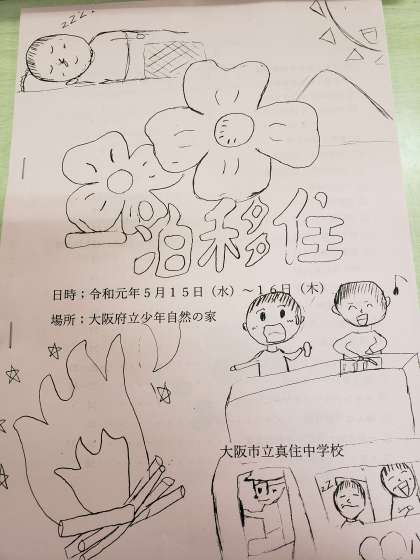 zzz
一泊移住
日時：令和元年5月15日（水）～16日（木）
場所：大阪府立少年自然の家
大阪市立真住中学校
zz
zz